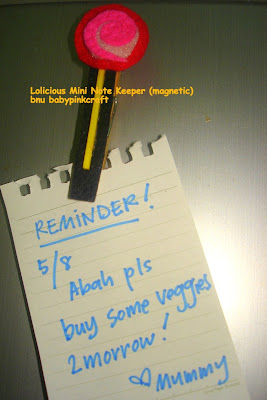 Lolicious Mini Note Keeper (magnetic)
bnu babypinkcraft
REMINDER!
5/8
Abah pls
buy some veggies
2morrow!
♡ Mummy